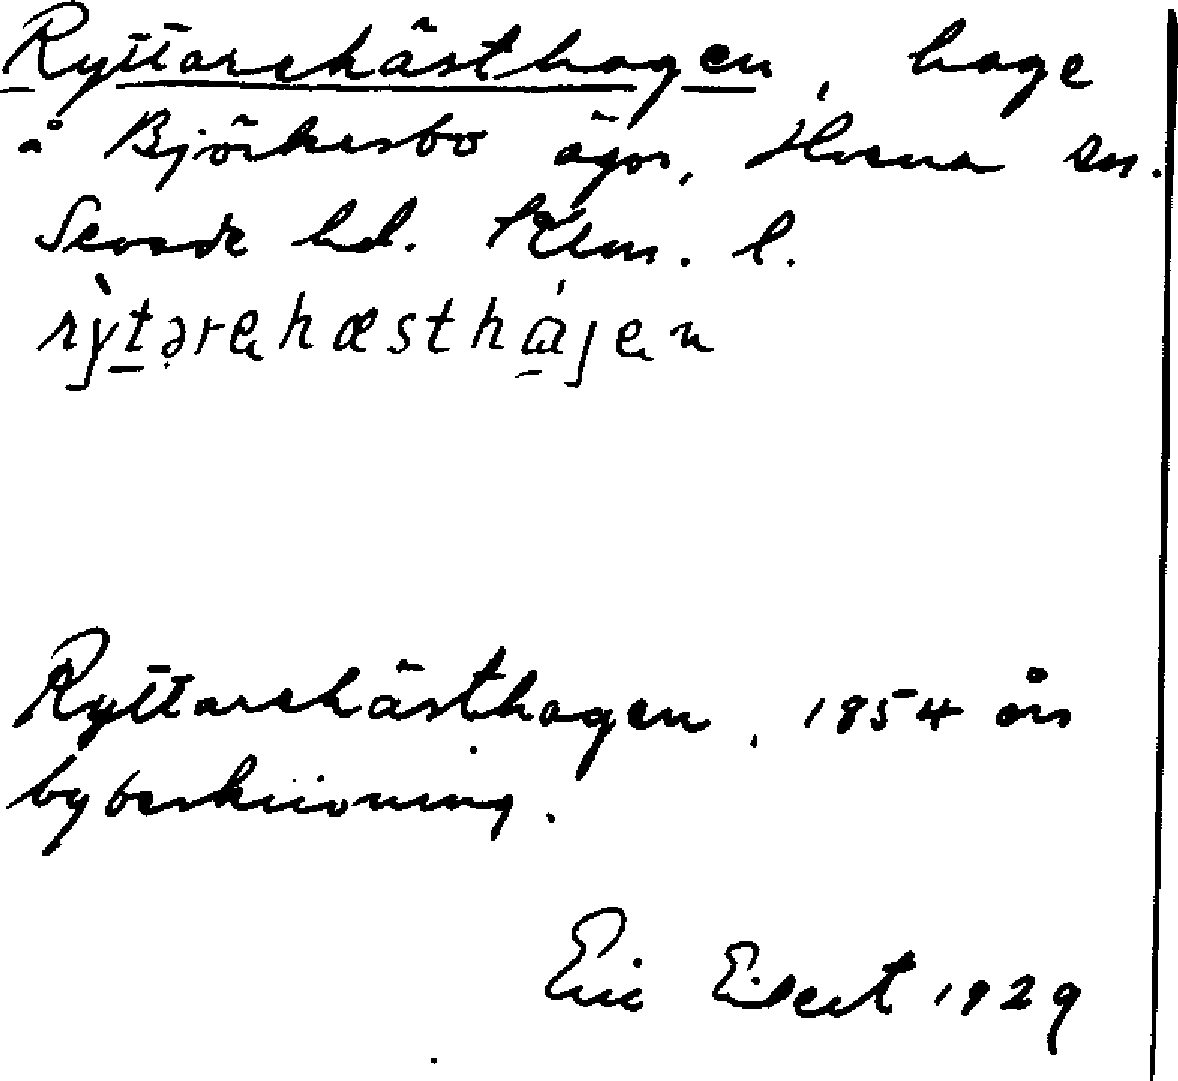 Ryttarehästhagen, hage
å Björkesbo ägor, Hvena sn.
Sevede hd. Klm. l.
rỳtərehæsthájen
Ryttarehästhagen, 1854 års
bybeskrivning.
Eric Eilert 1929